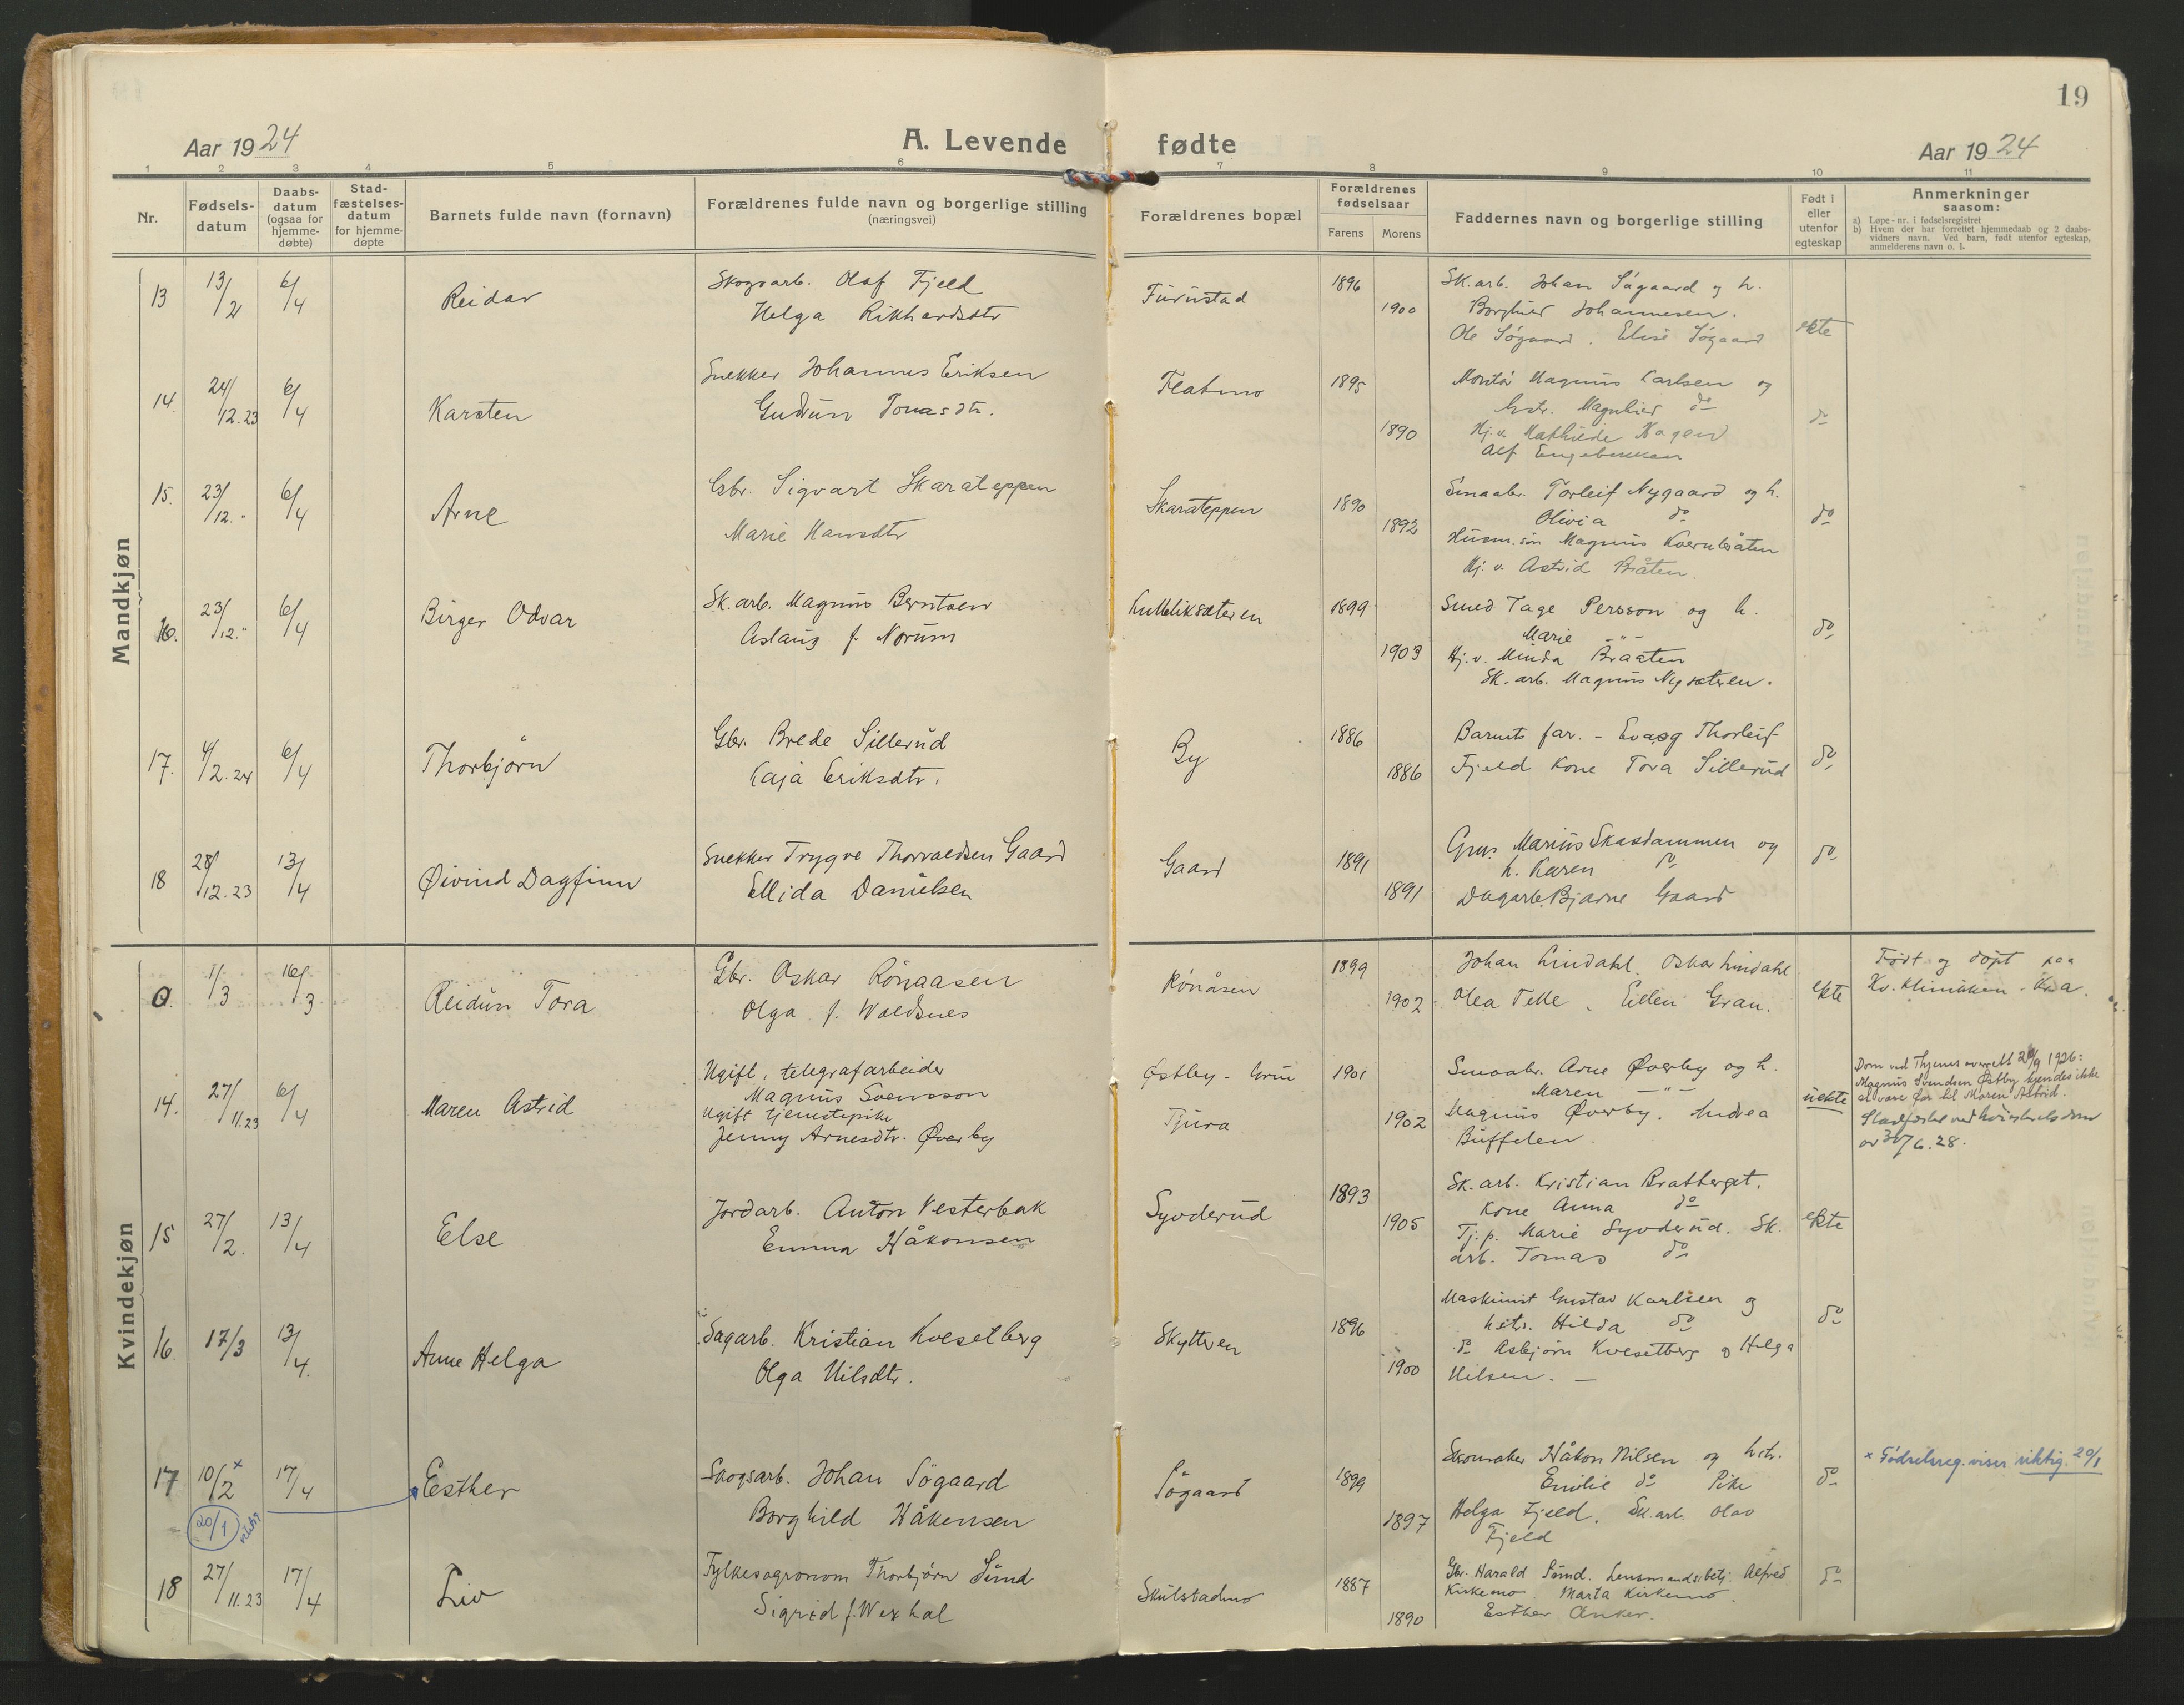 19
Aar 1924
A. Levende fødte
Aar 1924
1 2 3 4 5 6 7 8 9 10 11
Nr.
Fødsels-
datum
Daabs-
datum
(ogsaa for
hjemme-
døbte)
Stad-
fæstelses-
datum
for hjemme-
døpte
Barnets fulde navn (fornavn)
Forældrenes fulde navn og borgerlige stilling
(næringsvei)
Forældrenes bopæl
Forældrenes
fødselsaar
Farens
Morens
Faddernes navn og borgerlige stilling
Født i
eller
utenfor
egteskap
Anmerkninger
saasom:
a) Løpe-nr. i fødselsregistret
b) Hvem der har forrettet hjemmedaab og 2 daabs-
vidners navn. Ved barn, født utenfor egteskap,
anmelderens navn o. l.
Mandkjøn
13
13/2
6/4
Reidar
Skogarb. Olaf Fjeld
Helga Rikhardsdtr
Furustad
1896
1900
Sk.arb. Johan Søgaard og h.
Borghild Johannesen.
Ole Søgaard. Elise Søgaard
ekte
14.
24/12.23
6/4
Karsten
Snekker Johannes Eriksen
Gudrun Jonasdtr.
Flatmo
1895
1890
Montør Magnus Carlsen og
hstr. Magnhild do
Hj.v. Mathilde Hagen
Alf Engebakken
do
15.
23/12.-
6/4
Arne
Gbr. Sigvart Skarateppen
Marie Hansdtr
Skarateppen
1890
1892
Smaabr. Torleif Nygaard og h.
Olivia do
Husm.søn Magnus Kvernbråten
Hj. v. Astrid Bråten.
do
16.
23/12.-
6/4
Birger Odvar
Sk.arb. Magnus Berntsen
Aslaug f. Norum
1899
1903
Smed Tage Persson og h.
Marie -"-
Hj.v. Minda Braaten
Sk.arb. Magnus Nysæteren.
do
17.
4/2.24
6/4
Thorbjørn
Gbr. Brede Sillerud
Kaja Eriksdtr.
By
1886
1886
Barnets far. - Eva og Thorleif
Fjeld Kone Tora Sillerud
do
18
28/12.23
13/4
Øivind Dagfinn
Snekker Trygve Thorvaldsen Gaard
Ellida Danielsen
Gaard
1891
1891
Grus. Marius Skasdammen og
h. Karen do
Dagarb. Bjarne Gaard
do
Kvindekjøn
0.
1/3
16/3
Reidun Tora
Gbr. Oskar Rønaasen
Olga f. Woldsnes
Rønåsen
1899
1902
Johan Lindahl. Oskar Lindahl
Olea Telle. Ellen Gran.
ekte
Født og døpt paa
Kv.klinikken - Kra.
14.
27/11.23
6/4
Maren Astrid
Ugift, telegrafarbeider
Magnus Svensson
Ugift tjenstepike
Jenny Arnesdtr. Øverby
Østby - Grue
Tjura
1901
1902
Smaabr. Arne Øverby og h.
Maren -"-
Magnus Øverby. Andrea
Buffelen.
uekte
Dom ved Thjems overrett 29/9 1926:
Magnus Svendsen Østby kjendes ikke
at være far til Maren Astrid.
Stadfæstet ved høiesteretsdom
av 30/6.28.
15
27/2.
13/4
Else
Jordarb. Anton Vesterbak
Emma Håkonsen
Syvderud
1893
1905
Sk.arb. Kristian Bratberget.
Kone Anna do
Tj.p. Marie Syvderud. Sk.
arb. Tomas do
ekte
16.
17/3
13/4.
Anne Helga
Sagarb. Kristian Kvesetberg
Olga Nilsdtr.
Skytteren
1896
1900
Maskinist Gustav Karlsen og
hstr. Hilda do
do Asbjørn Kvesetberg og Helga
Nilsen. -
do
17
10/2 x
20/1 riktig
17/4
Esther
Skogsarb. Johan Søgaard
Borghild Håkensen
Søgaard
1899
1897
Skomaker Håkon Nilsen og hstr.
Emilie do Pike
Helga Fjeld. Sk.arb. Olav
Fjeld
do
x Fødselsreg. viser riktig 20/1
18
27/11.23
17/4
Liv
Fylkesagronom Thorbjørn Sund
Sigrid f. Wexhal
Skulstadmo
1887
1890
Gbr. Harald Sund. Lensmandsbetj. Alfred
Kirkemo Marta Kirkemo.
Esther Anker.
do